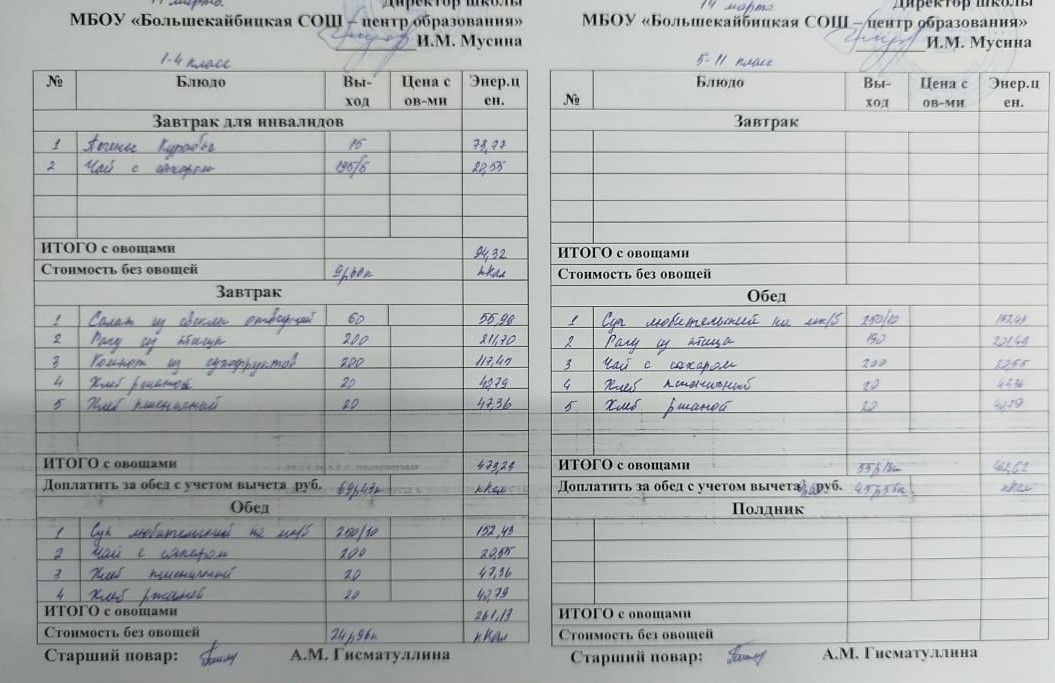 Директор школы
МБОУ «Большекайбицкая СОШ – центр образования»
И.М. Мусина
1-4 класс
№ Блюдо Вы-ход Цена с ов-ми Энер.цен.
Завтрак для инвалидов
1 Печенье 15
2 Чай с сахаром 195/5 20,55
ИТОГО с овощами 94,32
Стоимость без овощей ккал
Завтрак
1 Салат из свеклы отварной 60 55,99
2 Рагу из птицы 200 211,70
3 Компот из сухофруктов 200 117,45
4 Хлеб ржаной 20 40,79
5 Хлеб пшеничный 20 47,36
ИТОГО с овощами 473,29
Доплатить за обед с учетом вычета руб. ккал
Обед
1 Суп любительский на мк/б 250/10 152,43
2 Чай с сахаром 200 20,55
3 Хлеб пшеничный 20 47,36
4 Хлеб ржаной 20 40,79
ИТОГО с овощами 261,13
Стоимость без овощей 24р96к ккал
Старший повар: А.М. Гисматуллина
14 марта
Директор школы
МБОУ «Большекайбицкая СОШ – центр образования»
И.М. Мусина
5-11 класс
№ Блюдо Вы-ход Цена с ов-ми Энер.цен.
Завтрак
ИТОГО с овощами
Стоимость без овощей
Обед
1 Суп любительский на мк/б 250/10
2 Рагу из птицы 190
3 Чай с сахаром 200 20,55
4 Хлеб пшеничный 20 47,36
5 Хлеб ржаной 20 40,79
ИТОГО с овощами
Доплатить за обед с учетом вычета руб. ккал
Полдник
ИТОГО с овощами
Стоимость без овощей
Старший повар: А.М. Гисматуллина